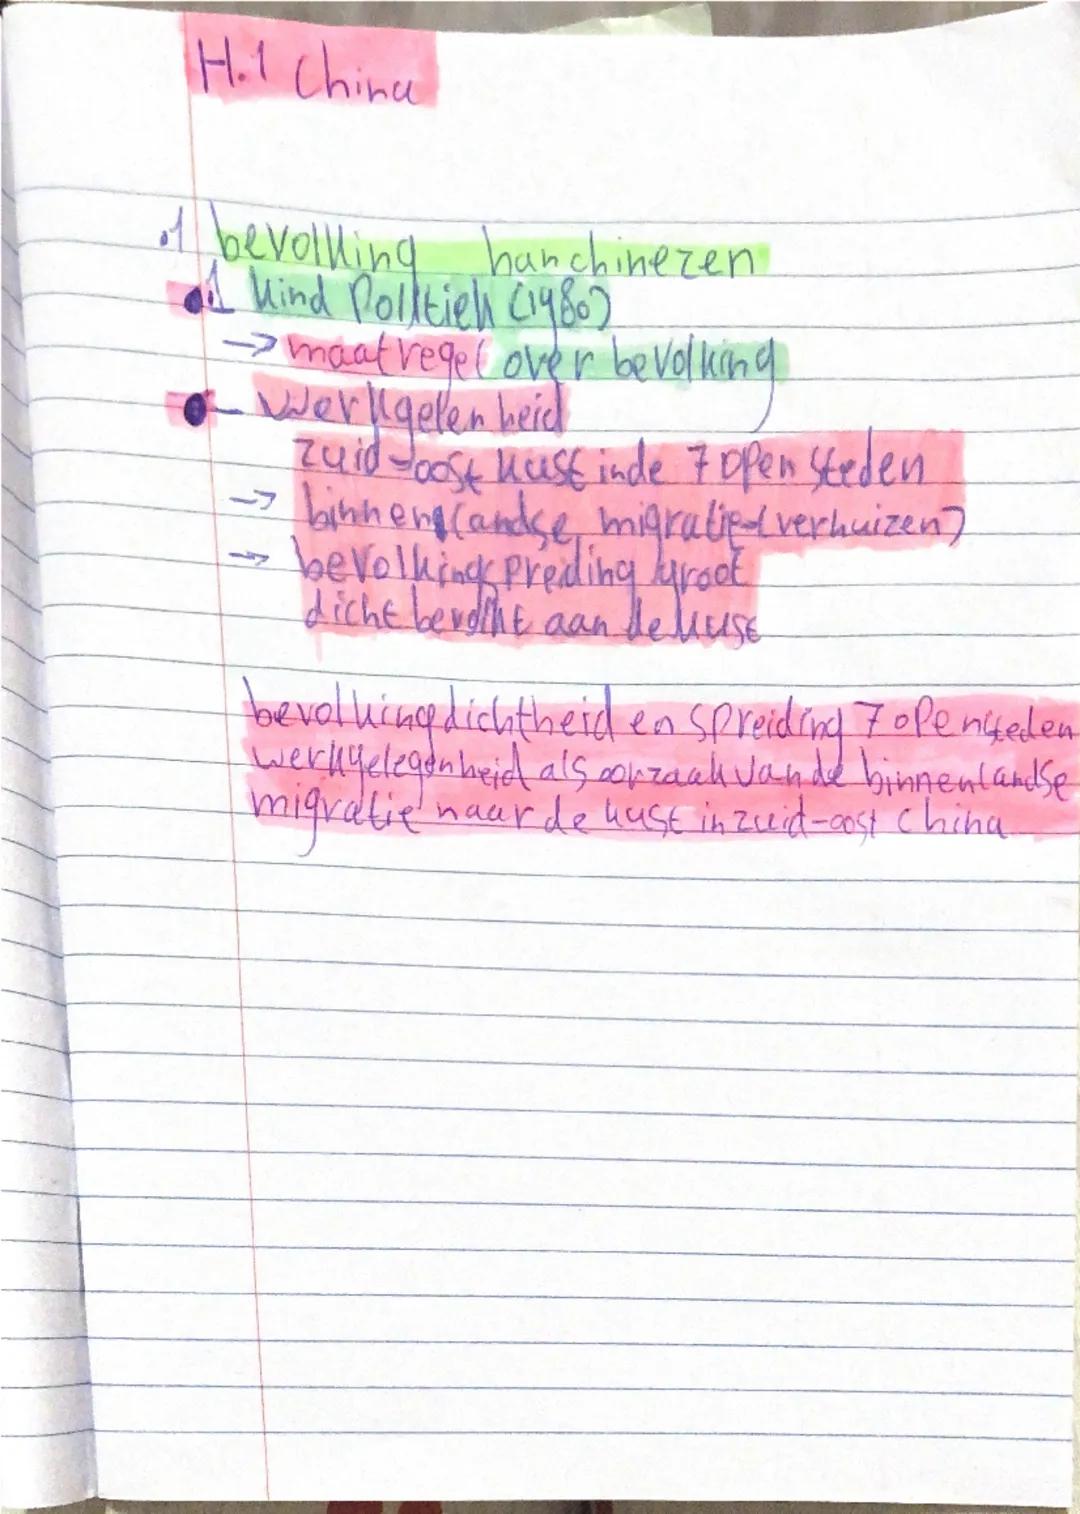 H.1 China
.1 bevolking hanchinezen
1 kind Politiek (1980)
→ maatregel over bevolking
– werkgelenheid
zuid-oost kust in de 7 open steden
→ binnenlandse migratie (verhuizen)
→ bevolkingspreiding groot
dicht bevolkt aan de kust
bevolkingdichtheid en spreiding 7 open steden
werkgelegenheid als oorzaak van de binnenlandse
migratie naar de kust in zuid-oost China